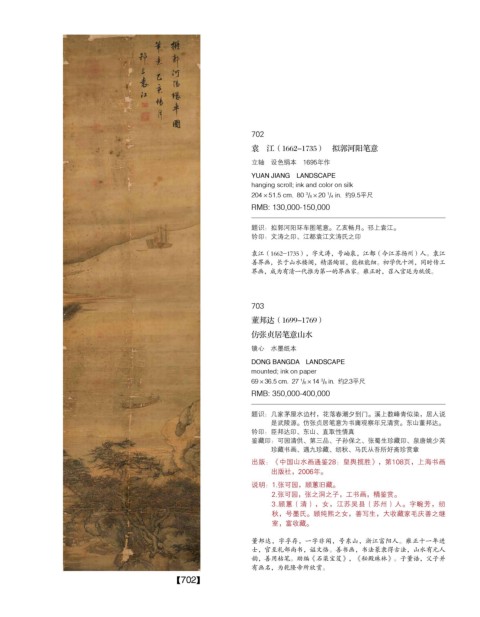 拟郭河阳环车图
笔意乙亥畅月
邗上袁江
702
袁　江（1662-1735）　拟郭河阳笔意
立轴　设色绢本　1695年作
YUAN JIANG　LANDSCAPE
hanging scroll; ink and color on silk
204×51.5 cm. 80 3/8×20 1/4 in. 约9.5平尺
RMB: 130,000-150,000
题识：拟郭河阳环车图笔意。乙亥畅月。邗上袁江。
钤印：文涛之印、江都袁江文涛氏之印
袁江（1662-1735），字文涛，号岫泉，江都（今江苏扬州）人。袁江
善界画，长于山水楼阁，精湛绚丽，能粗能细。初学仇十洲，同时传工
界画，成为有清一代推为第一的界画家。雍正时，召入宫廷为祗候。
703
董邦达（1699-1769）
仿张贞居笔意山水
镜心　水墨纸本
DONG BANGDA　LANDSCAPE
mounted; ink on paper
69×36.5 cm. 27 1/8×14 3/8 in. 约2.3平尺
RMB: 350,000-400,000
题识：几家茅屋水边村，花落春潮夕到门。溪上数峰青似染，居人说
是武陵源。仿张贞居笔意为书庸观察年兄清赏。东山董邦达。
钤印：臣邦达印、东山、直取性情真
鉴藏印：可园清供、第三品、子孙保之、张蜀生珍藏印、泉唐姚少英
珍藏书画、遇九珍藏、幼秋、马氏从吾所好斋珍赏章
出版：《中国山水画通鉴28：皇舆揽胜》，第108页，上海书画
出版社，2006年。
说明：1.张可园，顾蕙旧藏。
2.张可园，张之洞之子，工书画，精鉴赏。
3.顾蕙（清），女，江苏吴县（苏州）人。字畹芳，纫
秋，号墨氏。顾纯熙之女，善写生，大收藏家毛庆善之继
室，富收藏。
董邦达，字孚存，一字非闻，号东山，浙江富阳人。雍正十一年进
士，官至礼部尚书，谥文恪。善书画，书法篆隶得古法，山水有元人
韵，善用枯笔。助编《石渠宝笈》，《秘殿珠林》。子董诰，父子并
有画名，为乾隆帝所欣赏。
【702】